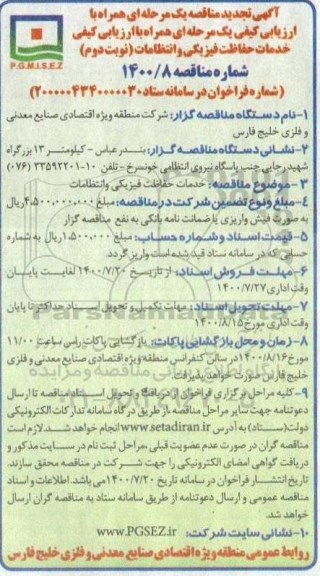 آگهی تجدید مناقصه یک مرحله ای همراه با
ارزیابی کیفی یک مرحله ای همراه با ارزیابی کیفی
خدمات حفاظت فیزیکی و انتظامات (نوبت دوم)
P.G.M.I.S.E.Z
شماره مناقصه ۱۴۰۰/۸
(شماره فراخوان در سامانه ستاد ۲۰۰۰۰۰۴۳۴۰۰۰۰۳۰)
۱- نام دستگاه مناقصه گزار: شرکت منطقه ویژه اقتصادی صنایع معدنی
و فلزی خلیج فارس
۲- نشانی دستگاه مناقصه گزار: بندرعباس - کیلومتر ۱۳ بزرگراه
شهید رجایی جنب پاسگاه نیروی انتظامی خونسرخ - تلفن ۱۰-۳۳۵۹۲۲۰۱ (۰۷۶)
۳- موضوع مناقصه: خدمات حفاظت فیزیکی وانتظامات
۴- مبلغ ونوع تضمین شرکت در مناقصه: مبلغ ۴،۵۰۰،۰۰۰،۰۰۰ریال
به صورت فیش واریزی یا ضمانت نامه بانکی به نفع مناقصه گزار
۵- قیمت اسناد و شماره حساب: مبلغ ۱،۵۰۰،۰۰۰ریال به شماره
حسابی که در سامانه ستاد قید شده است واریز گردد.
۶- مهلت فروش اسناد: از تاریخ ۱۴۰۰/۷/۲۰ لغایت پایان
وقت اداری ۱۴۰۰/۷/۲۷
۷- مهلت تحویل اسناد: مهلت تکمیل و تحویل اسناد حداکثر تا پایان
وقت اداری مورخ ۱۴۰۰/۸/۱۵
۸- زمان و محل بازگشایی پاکات: بازگشایی پاکات راس ساعت ۱۱/۰۰
مورخ ۱۴۰۰/۸/۱۶ در سالن کنفرانس منطقه ویژه اقتصادی صنایع معدنی و فلزی
خلیج فارس صورت خواهد پذیرفت.
۹- کلیه مراحل برگزاری فراخوان از دریافت و تحویل اسناد مناقصه تا ارسال
دعوتنامه جهت سایر مراحل مناقصه از طریق درگاه سامانه تدارکات الکترونیکی
دولت (ستاد) به آدرس www.setadiran.ir انجام خواهد شد. لازم است
مناقصه گران در صورت عدم عضویت قبلی، مراحل ثبت نام در سایت مذکور و
دریافت گواهی امضای الکترونیکی را جهت شرکت در مناقصه محقق سازند.
تاریخ انتشار فراخوان در سامانه تاریخ ۱۴۰۰/۷/۲۰ می باشد. اطلاعات و اسناد
مناقصه عمومی و ارسال دعوتنامه از طریق سامانه ستاد به مناقصه گران ارسال
خواهد شد.
۱۰- نشانی سایت شرکت: www.PGSEZ.ir
روابط عمومی منطقه ویژه اقتصادی صنایع معدنی و فلزی خلیج فارس